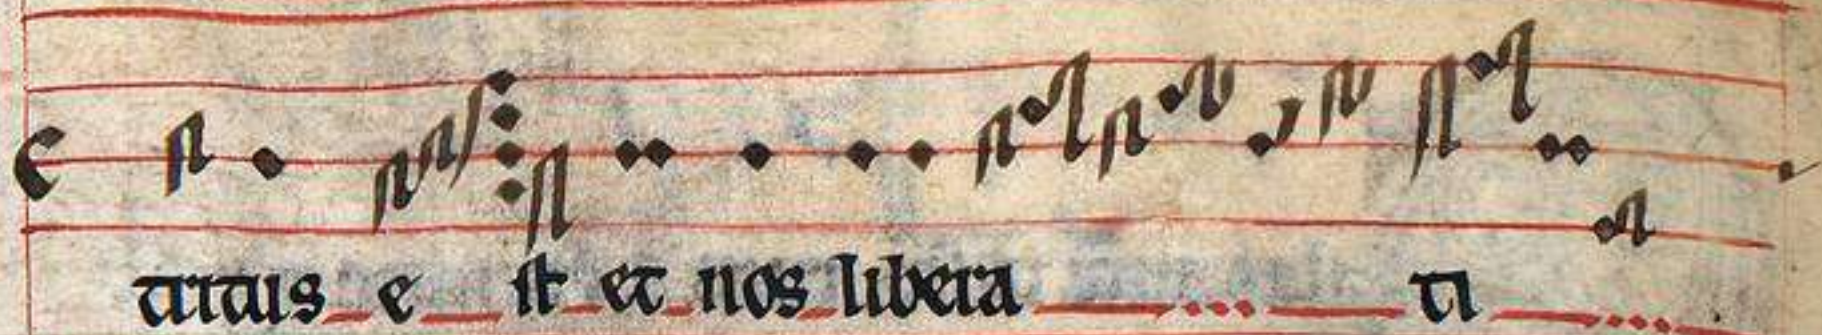 tritus e st et nos libera ti